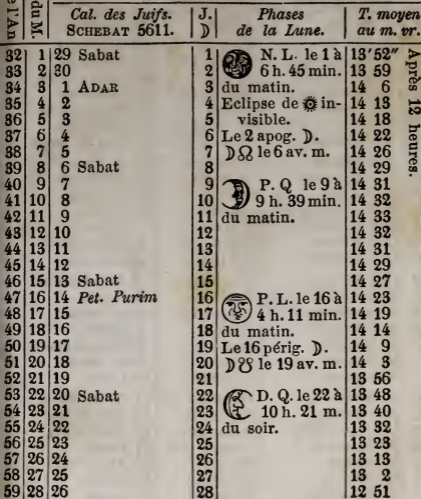 de l'An
du M. Cal. des Juifs. J. Phases T. moyen
SCHEBAT 5611. ☽ de la Lune. au m. vr.
32 1 29 Sabat 1 N. L. le 1 à 13'52"
33 2 30 2 6 h. 45 min. 13 59
34 3 1 ADAR 3 du matin. 14 6
35 4 2 4 Eclipse de ☼ in- 14 13
36 5 3 5 visible. 14 18
37 6 4 6 Le 2 apog. ☽. 14 22
38 7 5 7 ☽☊ le 6 av. m. 14 26
39 8 6 Sabat 8 14 29
40 9 7 9 P. Q le 9 à 14 31
41 10 8 10 9 h. 39 min. 14 32
42 11 9 11 du matin. 14 33
43 12 10 12 14 32
44 13 11 13 14 31
45 14 12 14 14 29
46 15 13 Sabat 15 14 27
47 16 14 Pet. Purim 16 P. L. le 16 à 14 23
48 17 15 17 4 h. 11 min. 14 19
49 18 16 18 du matin. 14 14
50 19 17 19 Le 16 périg. ☽. 14 9
51 20 18 20 ☽☋ le 19 av. m. 14 3
52 21 19 21 13 56
53 22 20 Sabat 22 D. Q. le 22 à 13 48
54 23 21 23 10 h. 21 m. 13 40
55 24 22 24 du soir. 13 32
56 25 23 25 13 23
57 26 24 26 13 13
58 27 25 27 13 2
59 28 26 28 12 51
Après 12 heures.